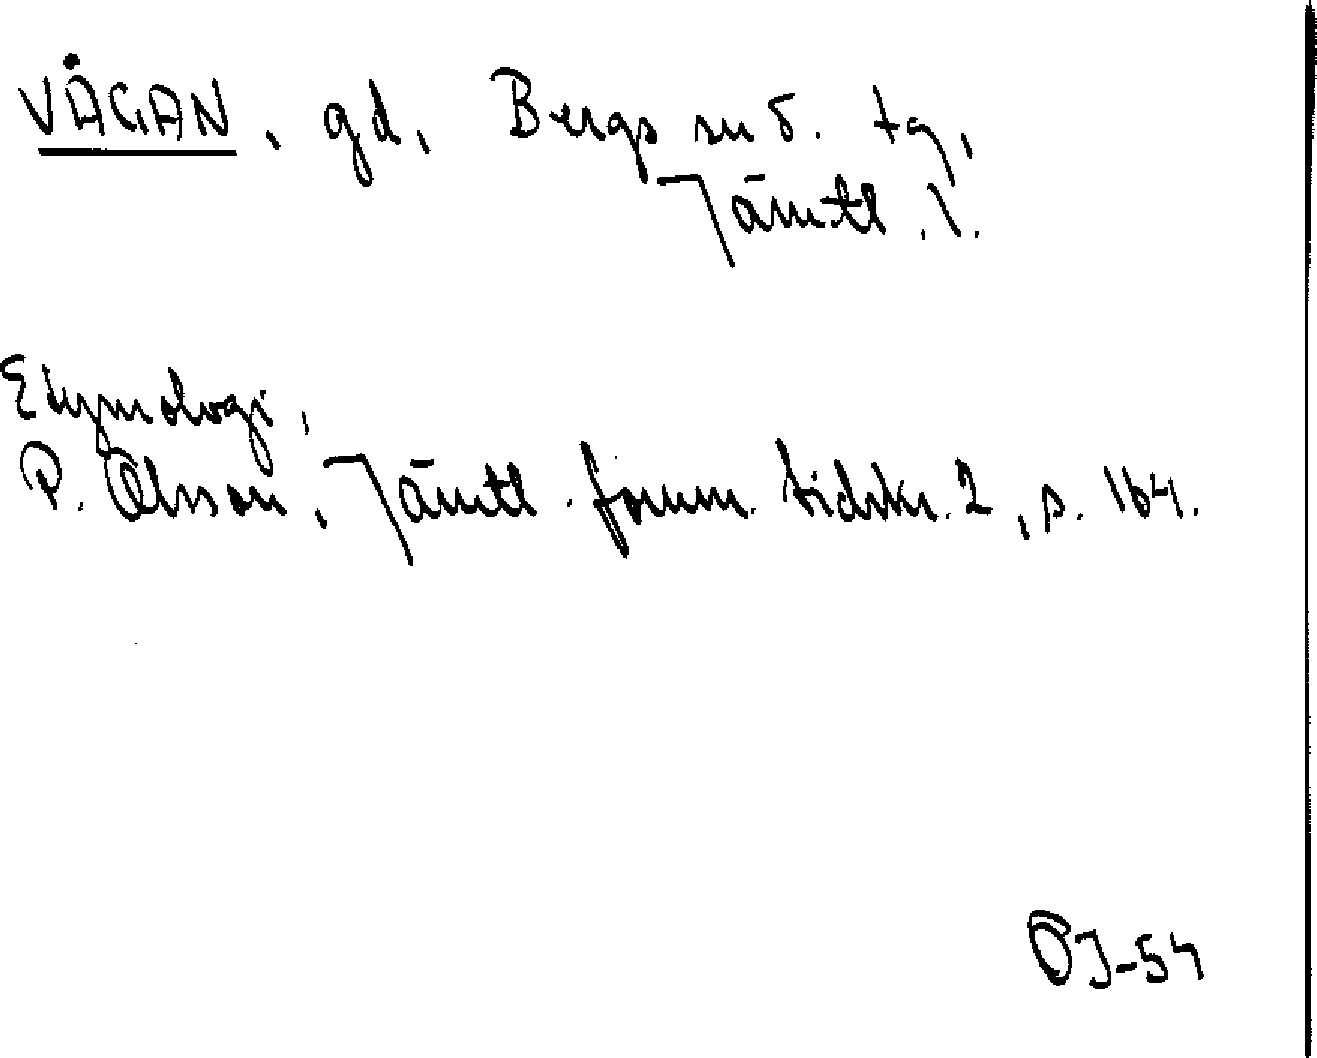 VÅGAN, gd, Bergs sn o. tg,
Jämtl. l.
Etymologi,
P. Olsson, Jämtl. fornm. tidskr. 2, s. 164.
ÖJ-54